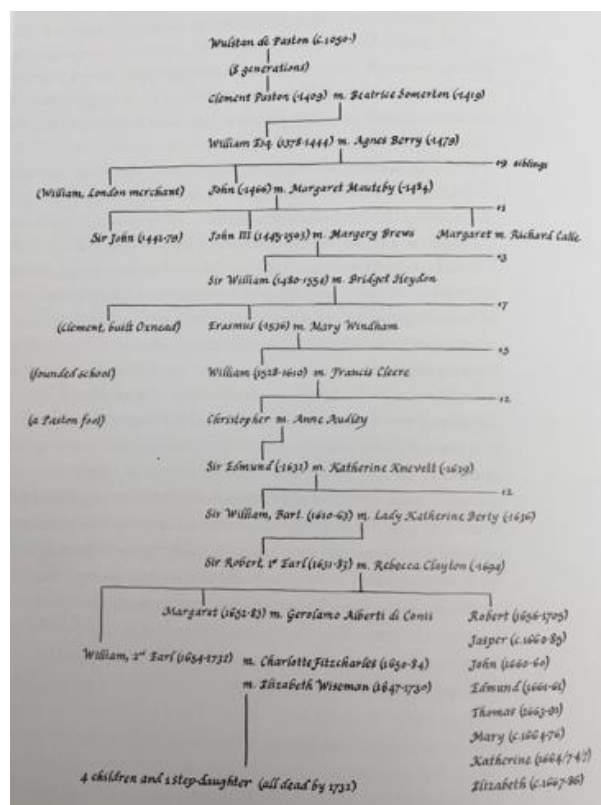 Wulstan de Paston (c.1050-)
(8 generations)
Clement Paston (-1409) m. Beatrice Somerton (-1419)
William Esq. (1378-1444) m. Agnes Berry (-1479)
+9 siblings
(William, London merchant) John (-1466) m. Margaret Mauteby (-1484)
+1
Sir John (1441-79) John III (1445-1503) m. Margery Brews Margaret m. Richard Calle
+3
Sir William (1480-1554) m. Bridget Heydon
+7
(Clement, built Oxnead) Erasmus (-1536) m. Mary Windham
+5
(founded school) William (1528-1610) m. Francis Cleere
+2
(a Paston fool) Christopher m. Anne Audley
Sir Edmund (-1632) m. Katherine Knevett (-1629)
+2
Sir William, Bart. (1610-63) m. Lady Katherine Berty (-1636)
Sir Robert, 1st Earl (1631-83) m. Rebecca Clayton (-1694)
Margaret (1652-83) m. Gerolamo Alberti di Conti
William, 2nd Earl (1654-1732) m. Charlotte Fitzcharles (1650-84)
m. Elizabeth Wiseman (1647-1730)
4 children and 1 step-daughter (all dead by 1732)
Robert (1656-1705)
Jasper (c.1660-85)
John (1660-60)
Edmund (1661-61)
Thomas (1663-91)
Mary (c.1664-76)
Katherine (1664/7-4?)
Elizabeth (c.1667-86)